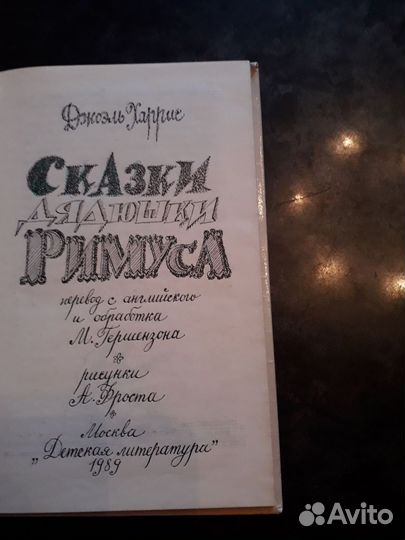 Джоэль Харрис
СКАЗКИ
ДЯДЮШКИ
РИМУСА
перевод с английского
и обработка
М. Гершензона
рисунки
А. Фроста
Москва
„Детская литература"
1989
Avito